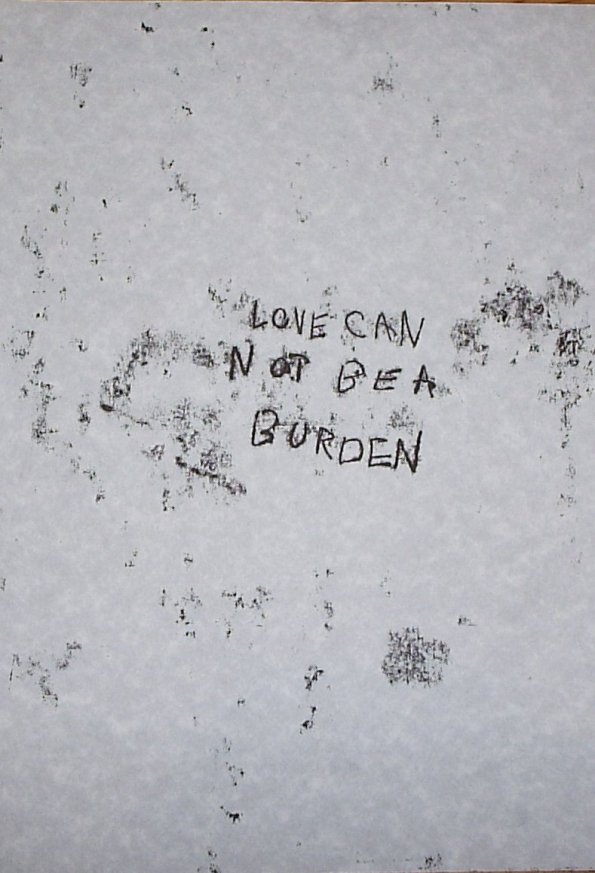 LOVE CAN
NOT BE A
BURDEN